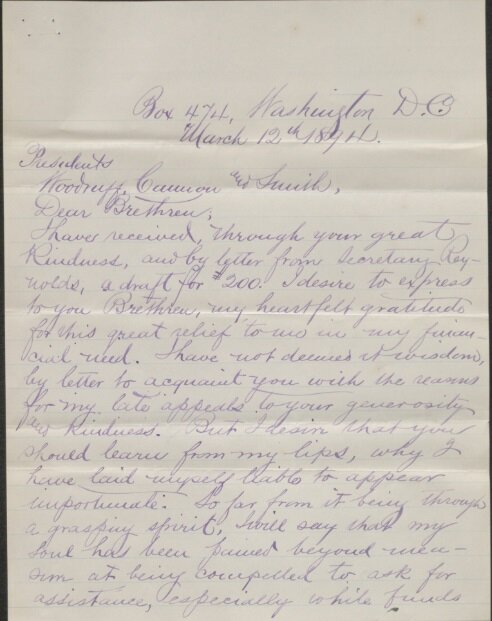 Box 474, Washington D.C
March 12th 1894.
Presidents
Woodruff, Cannon and Smith,
Dear Brethren;
I have received, through your great
kindness, and by letter from Secretary Rey-
nolds, a draft for $200. I desire to express
to you Brethren, my heartfelt gratitude
for this great relief to me in my finan-
cial need. I have not deemed it wisdom,
by letter to acquaint you with the reasons
for my late appeals to your generosity
and kindness. But I desire that you
should learn from my lips, why I
have laid myself liable to appear
importunate. So far from it being through
a grasping spirit, I will say that my
soul has been pained beyond mea-
sure at being compelled to ask for
assistance, especially while funds